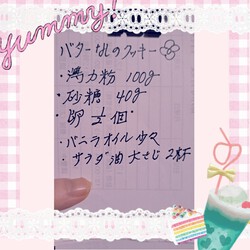 yummy!
バターなしのクッキー
・薄力粉 100g
・砂糖 40g
・卵 1/2個
・バニラオイル 少々
・サラダ油 大さじ 2杯